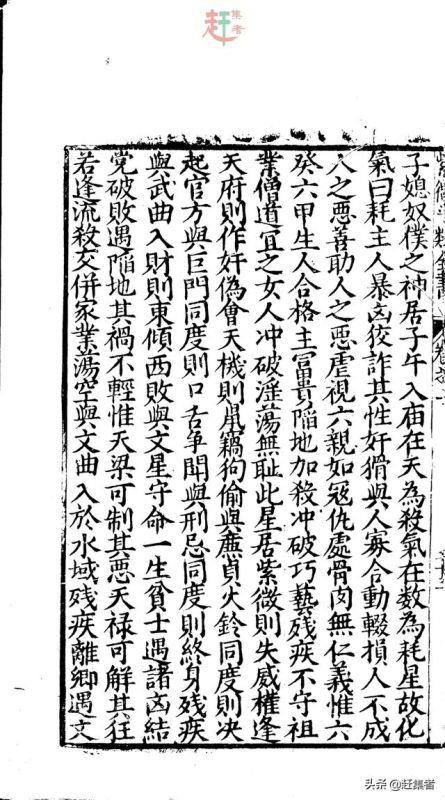 赶集者
子媳奴僕之神居子午入庙在天為殺氣在数為耗星故化
氣曰耗主人暴凶狡詐其性奸猾與人寡合動輟損人不成
人之惡善助人之惡虐視六親如寇仇處骨肉無仁義惟六
癸六甲生人合格主冨貴陥地加殺冲破巧藝残疾不守祖
業僧道宜之女人冲破滛蕩無耻此星居紫微則失威權逢
天府則作奸偽會天機則鼠竊狗偷與㢘貞火鈴同度則决
起官方與巨門同度則口舌争閗與刑忌同度則終身残疾
與武曲入財則東傾西敗與文星守命一生貧士遇諸凶結
党破敗遇陥地其禍不輕惟天梁可制其惡天禄可解其狂
若逢流殺交併家業蕩空與文曲入於水域残疾離鄉遇文
頭条 @赶集者